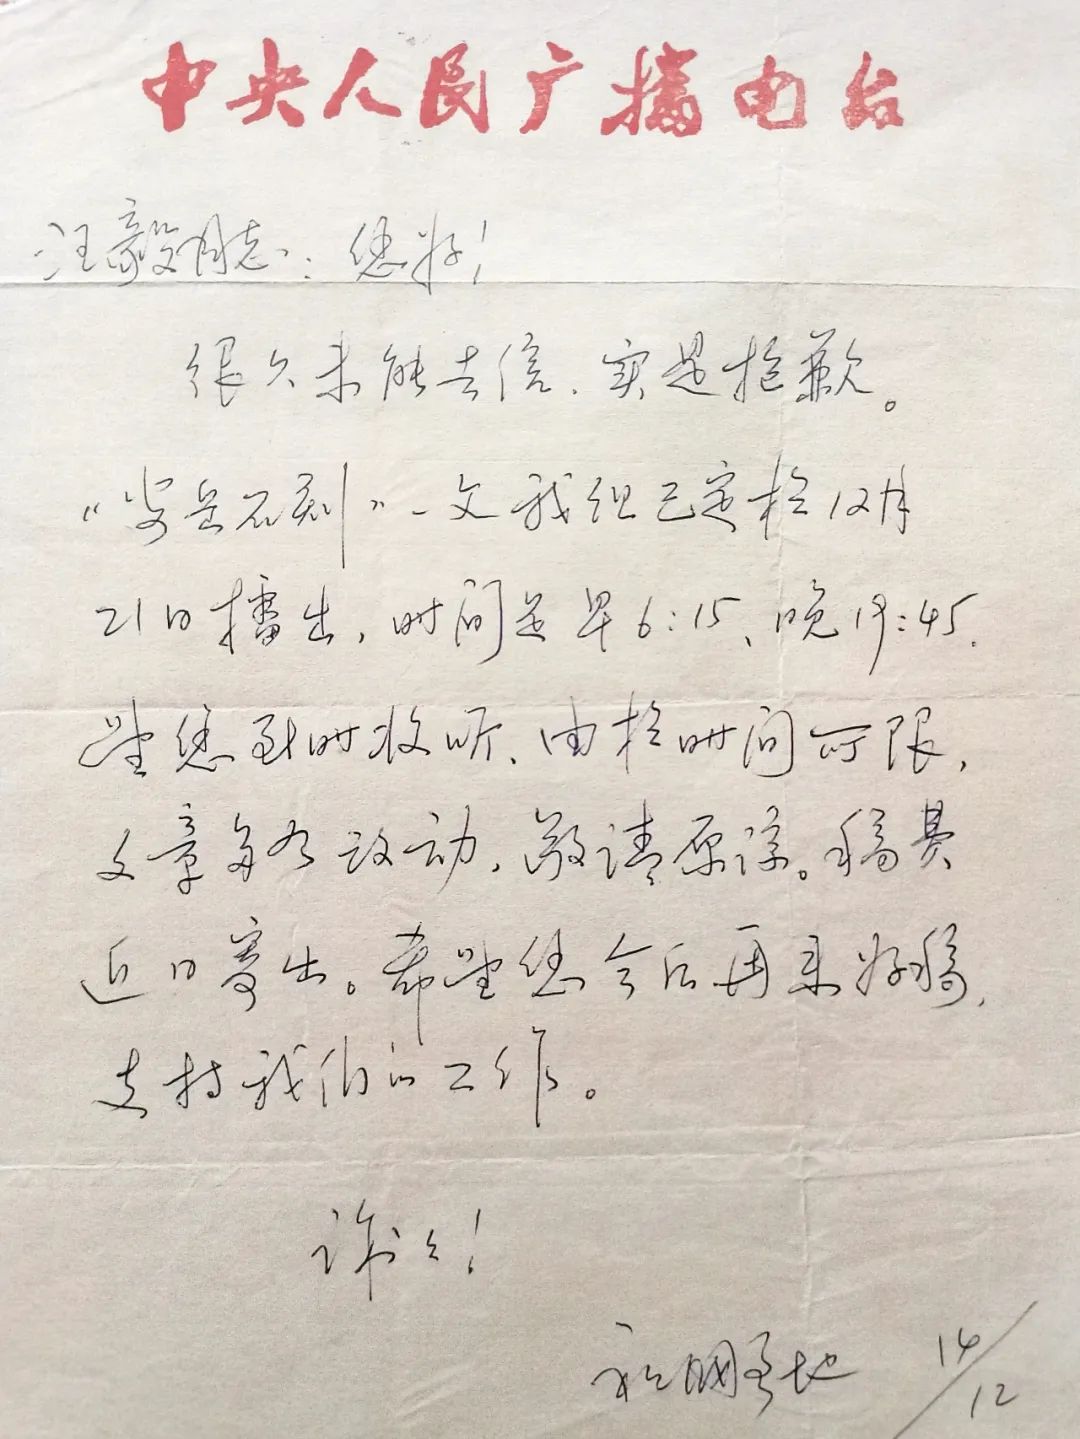 中央人民广播电台
汪毅同志：您好！
很久未能去信，实是抱歉。
“安岳石刻”一文我组已定于12月
21日播出，时间是早6:15、晚19:45.
望您到时收听，由于时间所限，
文章多有改动，敬请原谅。稿费
近日寄出。希望您今后再来好稿，
支持我们的工作。
谢谢！
祖国各地 14/12